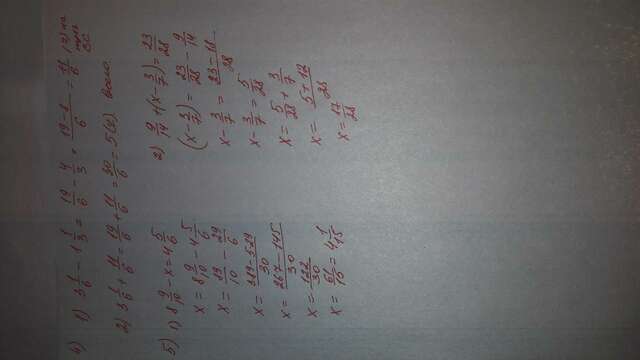 4) 1) 3 1/6 - 1 1/3 = 19/6 - 4/3 = 19-8/6 = 11/6 (г) на
ВС
2) 3 1/6 + 11/6 = 19/6 + 11/6 = 30/6 = 5 (г) всего.
5) 1) 8 9/10 - x = 4 5/6
x = 8 9/10 - 4 5/6
x = 89/10 - 29/6
x = 267-145/30
x = 122/30
x = 61/15 = 4 1/15
2) 9/14 + (x - 3/7) = 23/28
(x - 3/7) = 23/28 - 9/14
x - 3/7 = 23-18/28
x - 3/7 = 5/28
x = 5/28 + 3/7
x = 5+12/28
x = 17/28